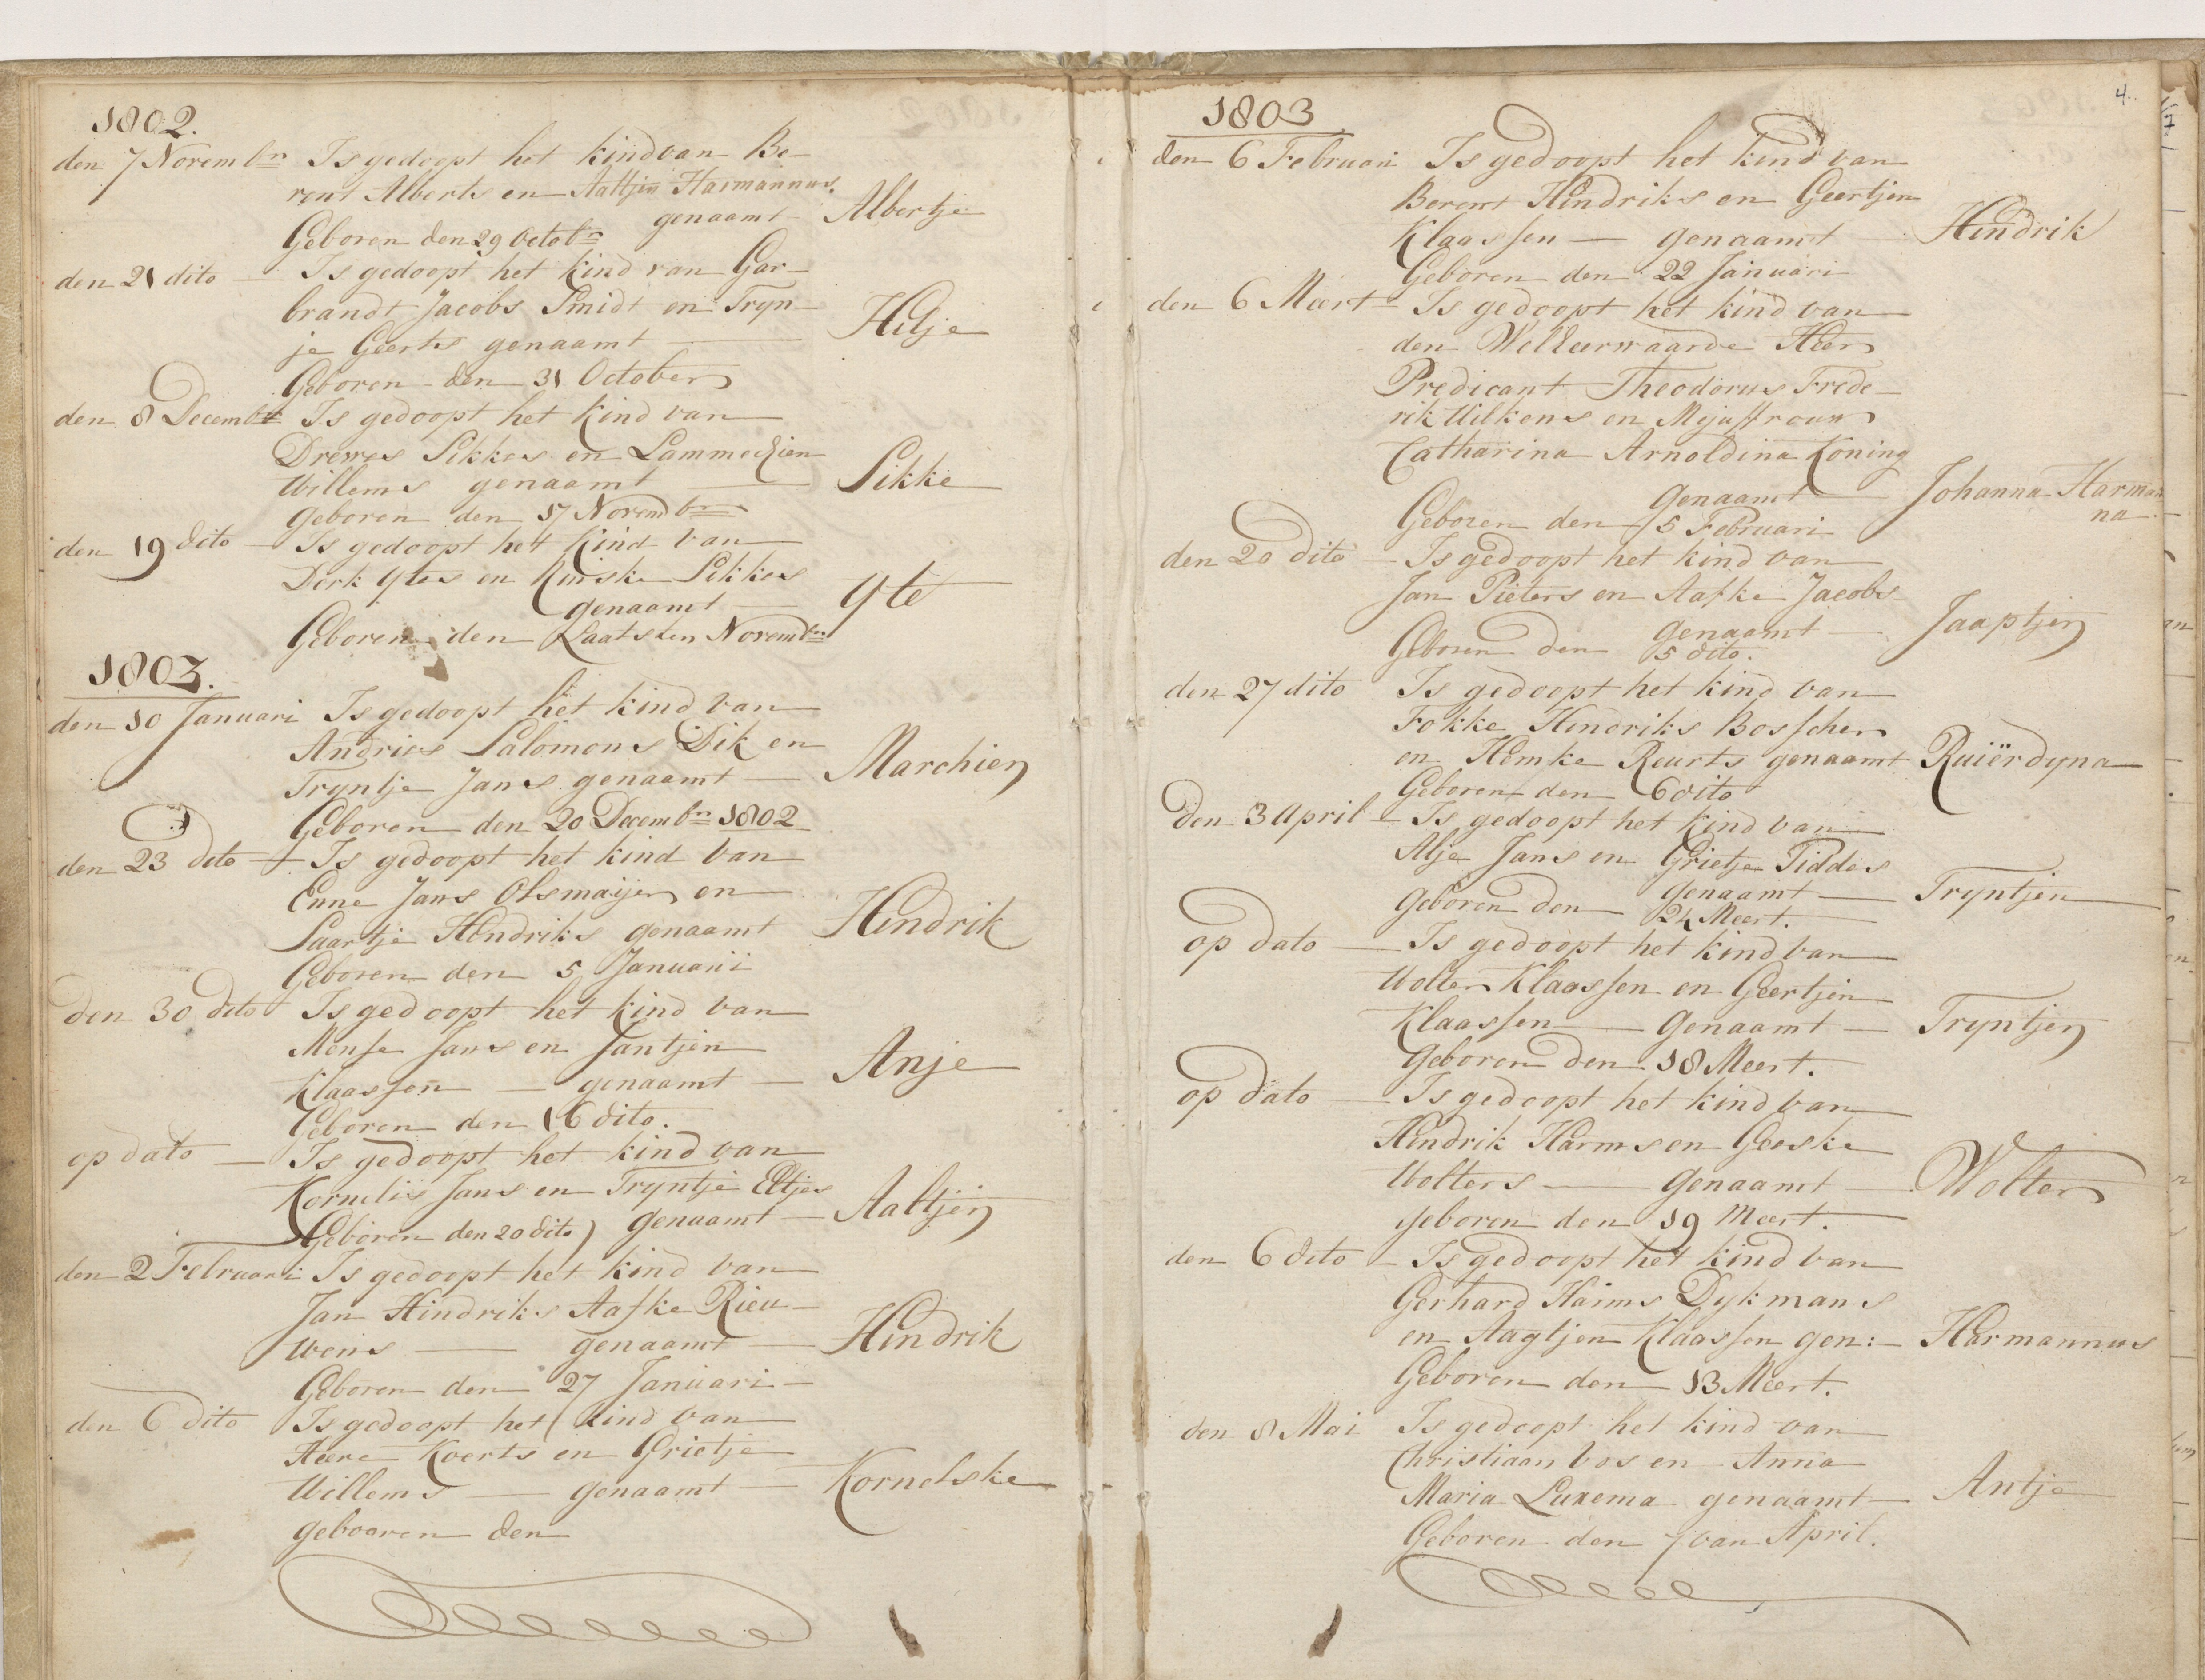 1802.
den 7 Novembr Is gedoopt het kind van Be-
rent Alberts en Aaltjen Harmannus.
genaamt - Albertje
Geboren den 29 Octobr
den 21 dito - Is gedoopt het kind van Gar-
brandt Jacobs Smidt en Tryn-
je Geerts genaamt - Hilje
Geboren den 31 October
den 8 Decembr Is gedoopt het kind van
Drewes Sikkes en Lammechien
Willems genaamt - Sikke
Geboren den 17 Novembr
den 19 dito - Is gedoopt het kind van
Derk Ytes en Sikkes
genaamt - Yte
Geboren den Laatsten Novembr
1803.
den 10 Januari Is gedoopt het kind van
Andries Salomons Dik en
Tryntje Jans genaamt - Marchien
Geboren den 20 Decembr 1802
den 23 dito - Is gedoopt het kind van
Enne Jans Olsmaijer en
Saartje Hendriks genaamt Hindrik
Geboren den 5 Januarii
den 30 dito Is gedoopt het kind van
Mense Jans en Jantjen
Klaassen - genaamt - Anje
Geboren den 16 dito.
op dato - Is gedoopt het kind van
Kornelis Jans en Tryntje Eltjes
Geboren den 20 dito) genaamt - Aaltjen
den 2 Februari Is gedoopt het kind van
Jan Hindriks Aafke Rieu-
wens - genaamt - Hindrik
Geboren den 27 Januari -
den 6 dito Is gedoopt het kind van
Heere Koerts en Grietje
Willems - genaamt - Kornelske
gebooren den
4.
1803
den 6 Februari Is gedoopt het kind van
Berent Hindriks en Geertjen
Klaassen - genaamt - Hindrik
Geboren den 22 Januari
den 6 Meert - Is gedoopt het kind van
den WelEerwaarde Heer
Predicant Theodorus Frede-
rik Uilkens en Mejuffrouw
Catharina Arnoldina Koning
genaamt - Johanna Harman
na
Geboren den 15 Februari
den 20 dito - Is gedoopt het kind van
Jan Pieters en Aafke Jacobs
genaamt - Jaaptjen
Geboren den 5 dito.
den 27 dito Is gedoopt het kind van
Fokke Hindriks Bosscher
en Hemke Reurts genaamt Ruiërdyna
Geboren den 6 dito
den 3 April - Is gedoopt het kind van
Alje Jans en Grietje Tiddes
genaamt - Tryntjen
Geboren den 24 Meert.
op dato - Is gedoopt het kind van
Wolter Klaassen en Geertjen
Klaassen - genaamt - Tryntjen
Geboren den 18 Meert.
op dato - Is gedoopt het kind van
Hindrik Harms en Geeske
Wolters - genaamt - Wolter
geboren den 19 Meert.
den 6 dito - Is gedoopt het kind van
Gerhard Harms Dykmans
en Aagtjen Klaassen gen: - Harmannus
Geboren den 13 Meert.
den 8 Mai Is gedoopt het kind van
Christiaan Vos en Anna
Maria Luxema genaamt - Antje
Geboren den 7 van April.